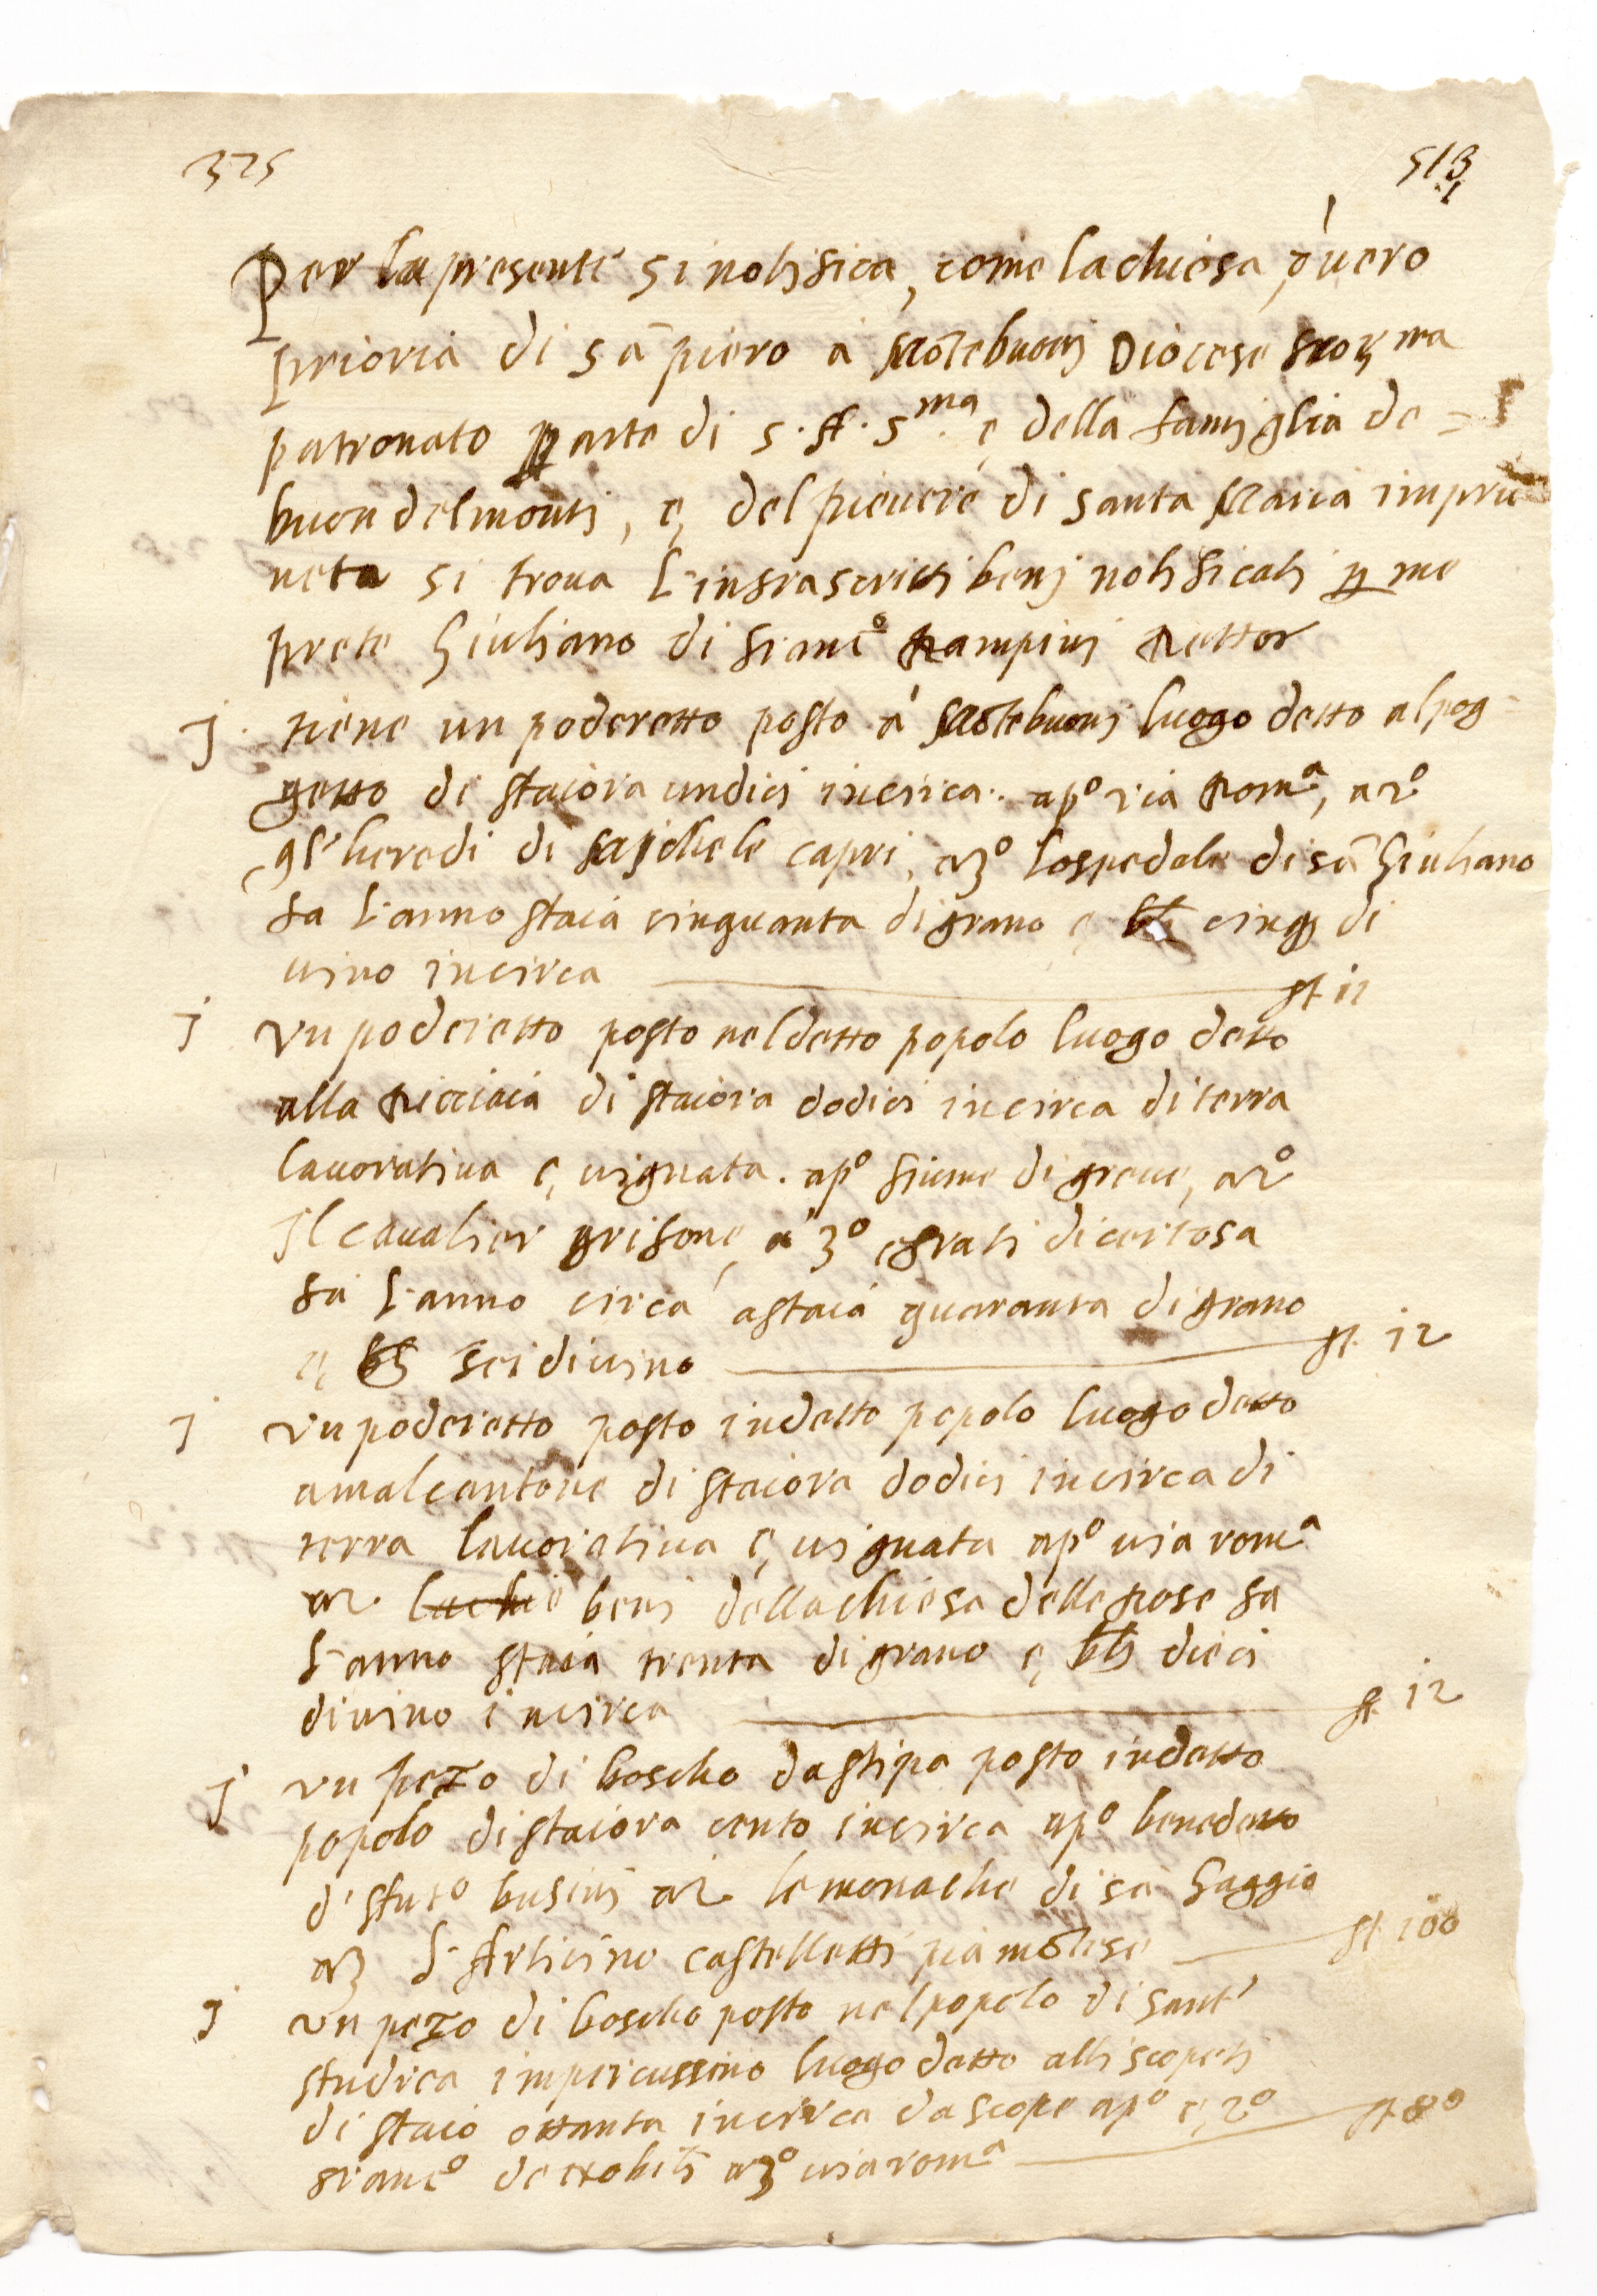 325
513
Per la presente si notifica, come la chiesa, o'uero
prioria di sã piero a Mõtebuonj Diocese
patronato parte di S. A. S.ma e, della famiglia de =
buondelmonti, e, del piuiere di Santa Maria impru
neta si troua l'infrascritti benj notificati p me
prete Giuliano di franc.o Rampinj Rettor
j. tiene un poderetto posto a' Mõtebuonj luogo detto al pog=
getto di staiora undici incirca. a p.o via Rom.a, a 2.o
gl'heredi di Michele capri, a 3.o lospedale di sã Giuliano
fa l'anno staia cinquanta di grano e, bli cinq di
uino incirca st 11
j vn poderetto posto nel detto popolo luogo detto
alla Ricciaia di staiora dodici incirca di terra
lauoratiua e, uignata. a p.o fiume di greue, a 2.o
Il caualier grifone, a 3.o e frati di certosa
fa l'anno circa a staia quaranta di grano
e, bli sei di uino st. 12
j vn poderetto posto in detto popolo luogo detto
a malcantone di staiora dodici incirca di
terra lauoratiua e, uignata a p.o uia rom.a
a 2. beni della chiesa delle Rose fa
l'anno staia trenta di grano e, bli dieci
di uino incirca st. 12
j vn pezo di boscho da stipa posto in detto
popolo di staiora cento incirca a p.o benedetto
businj a 2. le monache di sã Gaggio
a 3 l'Arlicino castelletti piamõtese st. 100
j vn pezo di boscho posto nel popolo di sant'
Andrea impercussino luogo detto alli scopeti
di staio ottanta incirca da scope a p.o e, 2.o st 80
franc.o de a 3.o uia rom.a